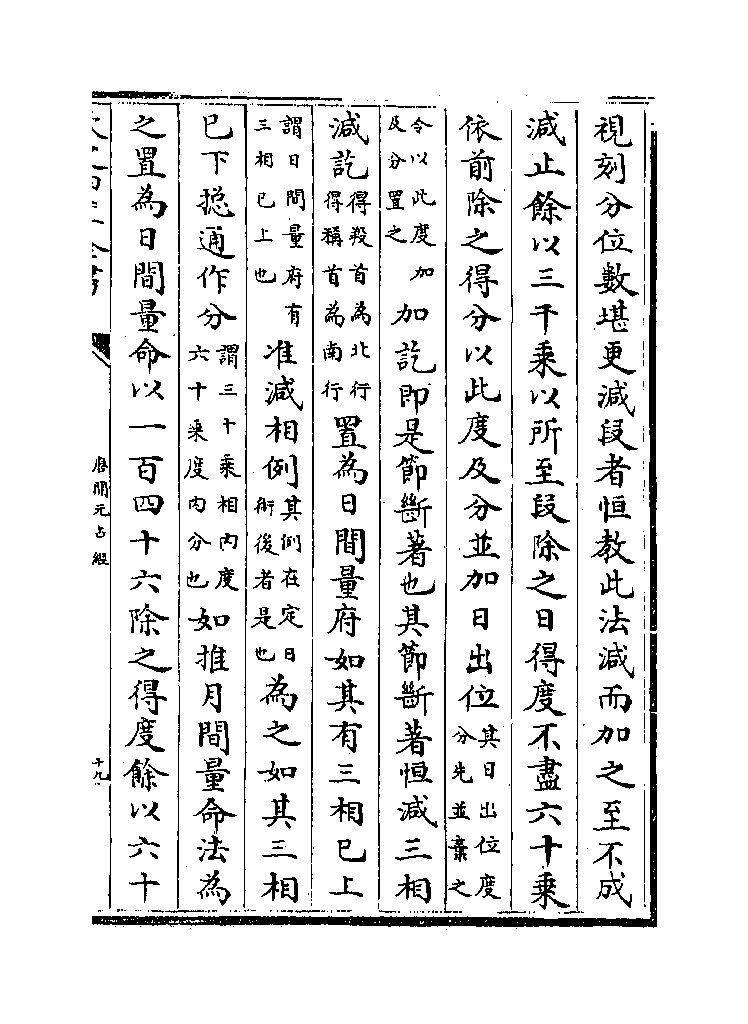 視刻分位數堪更減段者恒教此法減而加之至不成
減止餘以三千乘以所至段除之日得度不盡六十乘
依前除之得分以此度及分並加日出位其日出位度分先並棄之
令以此度加及分置之加訖即是節斷著也其節斷著恒減三相
減訖得殺首為北行得稱首為南行置為日間量府如其有三相已上
謂日間量府有三相已上也准減相例其例在定日術後者是也為之如其三相
已下揔通作分謂三十乘相内度六十乘度内分也如推月間量命法為
之置為日間量命以一百四十六除之得度餘以六十
唐開元占經
十九